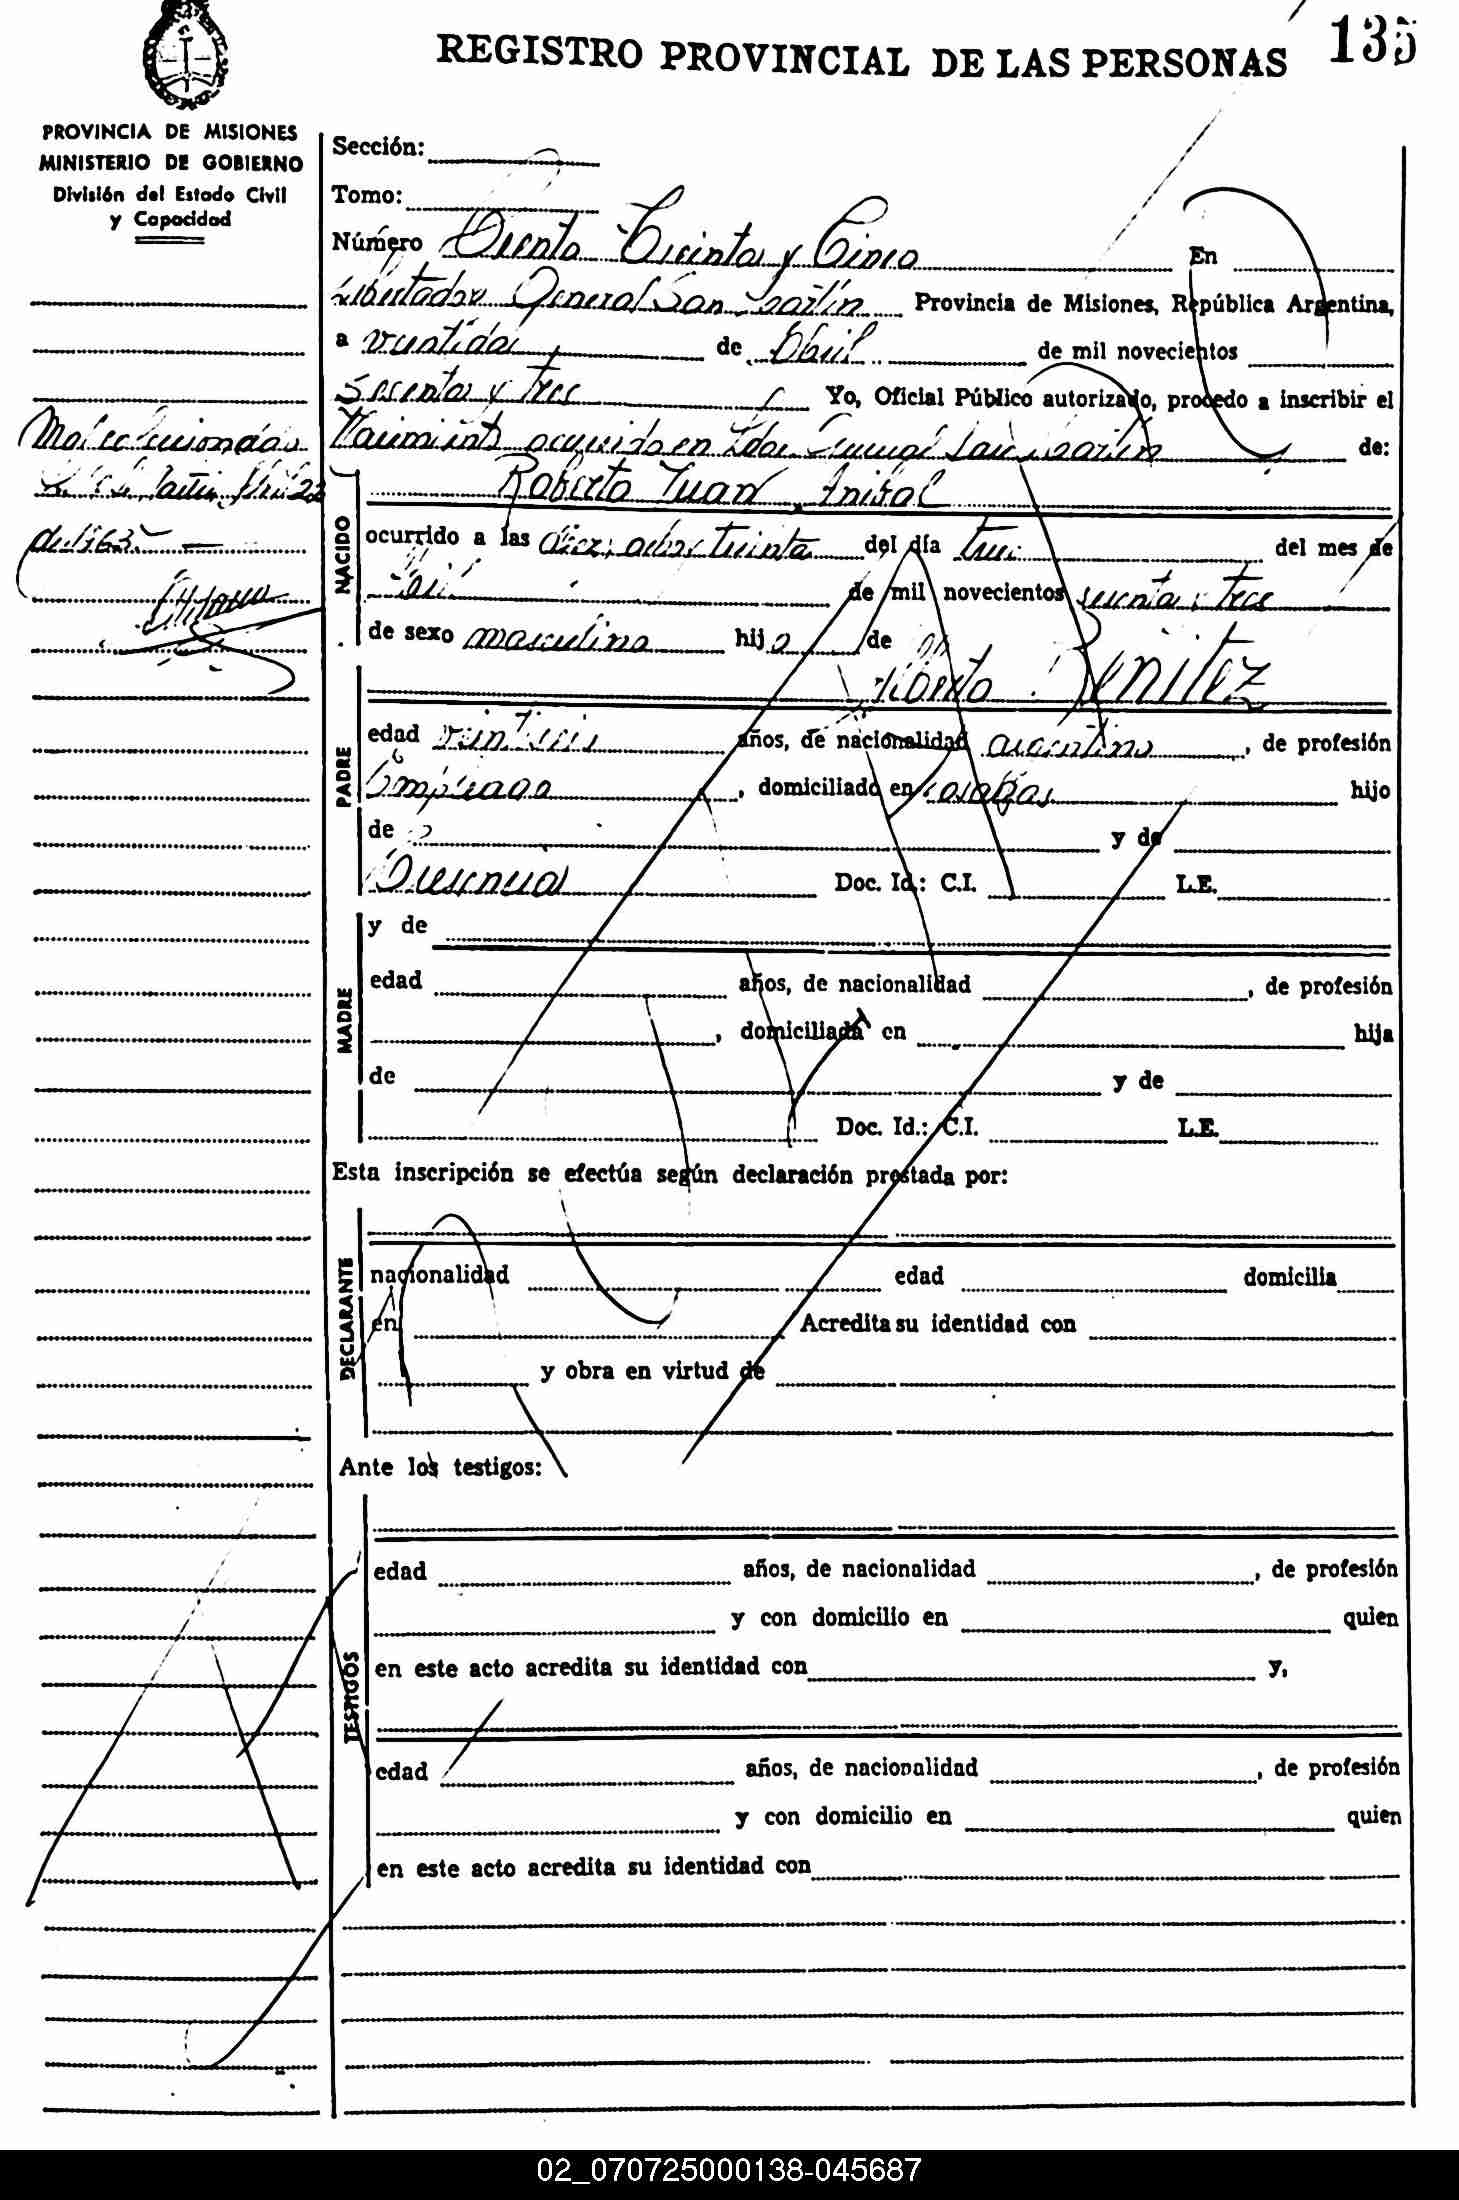 135
REGISTRO PROVINCIAL DE LAS PERSONAS
PROVINCIA DE MISIONES
MINISTERIO DE GOBIERNO
División del Estado Civil
y Capacidad
Sección:
Tomo:
Número Ciento Treinta y Cinco En
Libertador General San Martín Provincia de Misiones, República Argentina,
a veintidos de Abril de mil novecientos
sesenta y tres Yo, Oficial Público autorizado, procedo a inscribir el
Nacimiento ocurrido en Ldor. General San Martín de:
Mal
Abril 22
de 1963.
NACIDO
Roberto Juan Anibal
ocurrido a las diez, ocho, treinta del día tres del mes de
Abril de mil novecientos sesenta y tres
de sexo masculino hijo de
Alberto BENITEZ
PADRE
edad veintiseis años, de nacionalidad argentino, de profesión
Empleado, domiciliado en Posadas hijo
de y de
Doc. Id.: C.I. L.E.
MADRE
y de
edad años, de nacionalidad , de profesión
, domiciliada en hija
de y de
Doc. Id.: C.I. L.E.
Esta inscripción se efectúa según declaración prestada por:
DECLARANTE
nacionalidad edad domicilia
en Acredita su identidad con
y obra en virtud de
Ante los testigos:
TESTIGOS
edad años, de nacionalidad , de profesión
y con domicilio en quien
en este acto acredita su identidad con y,
edad años, de nacionalidad , de profesión
y con domicilio en quien
en este acto acredita su identidad con
02_070725000138-045687